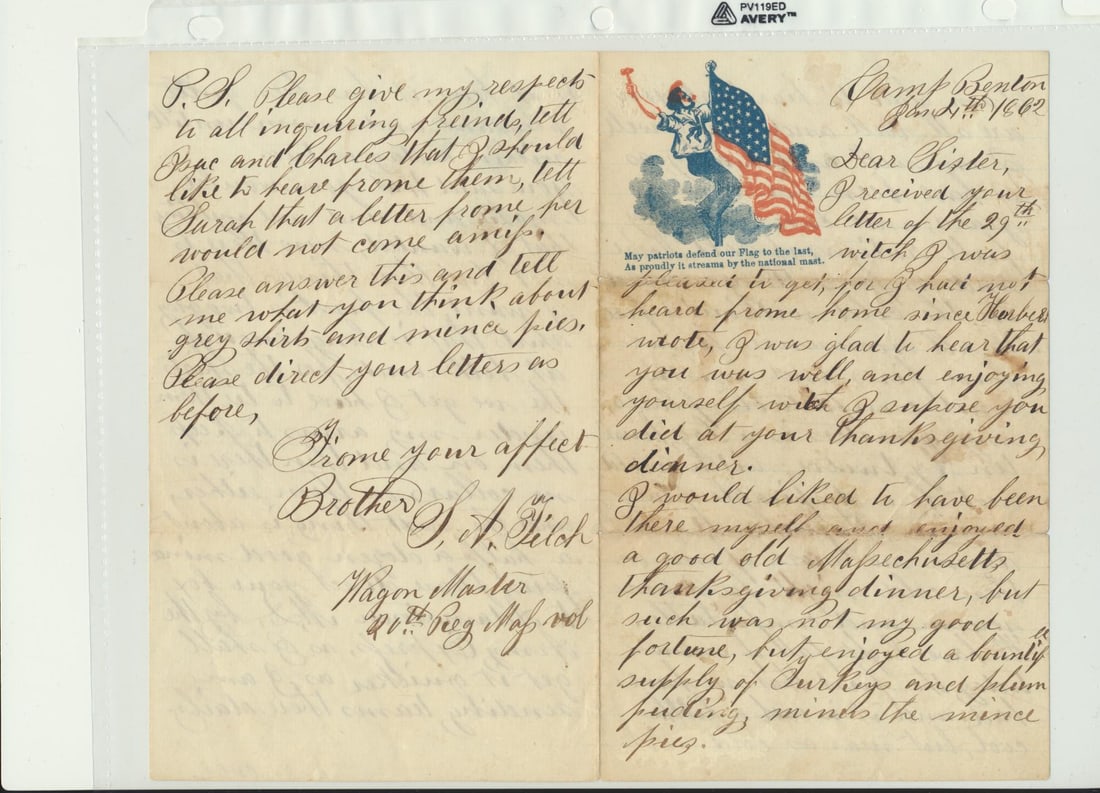 PV119ED
AVERY™
P. S. Please give my respects
to all inquiring freinds, tell
Isac and Charles that I should
like to heare frome them, tell
Sarah that a letter frome her
would not come amiss.
Please answer this and tell
me what you think about
grey shirts and mince pies.
Please direct your letters as
before,
Frome your affect
Brother S. A.
Wagon Master
20th Reg Mass vol
Camp Benton
Jan 4th 1862
Dear Sister,
I received your
letter of the 29th
witch I was
May patriots defend our Flag to the last,
As proudly it streams by the national mast.
pleased to get, for I had not
heard frome home since Herbert
wrote, I was glad to hear that
you was well, and enjoying
yourself witch I supose you
did at your Thanksgiving
dinner.
I would liked to have been
there myself and enjoyed
a good old Massechusetts
thanksgiving dinner, but
such was not my good
fortune, but enjoyed a bountiful
supply of Turkeys and plum
puding, minus the mince
pies.